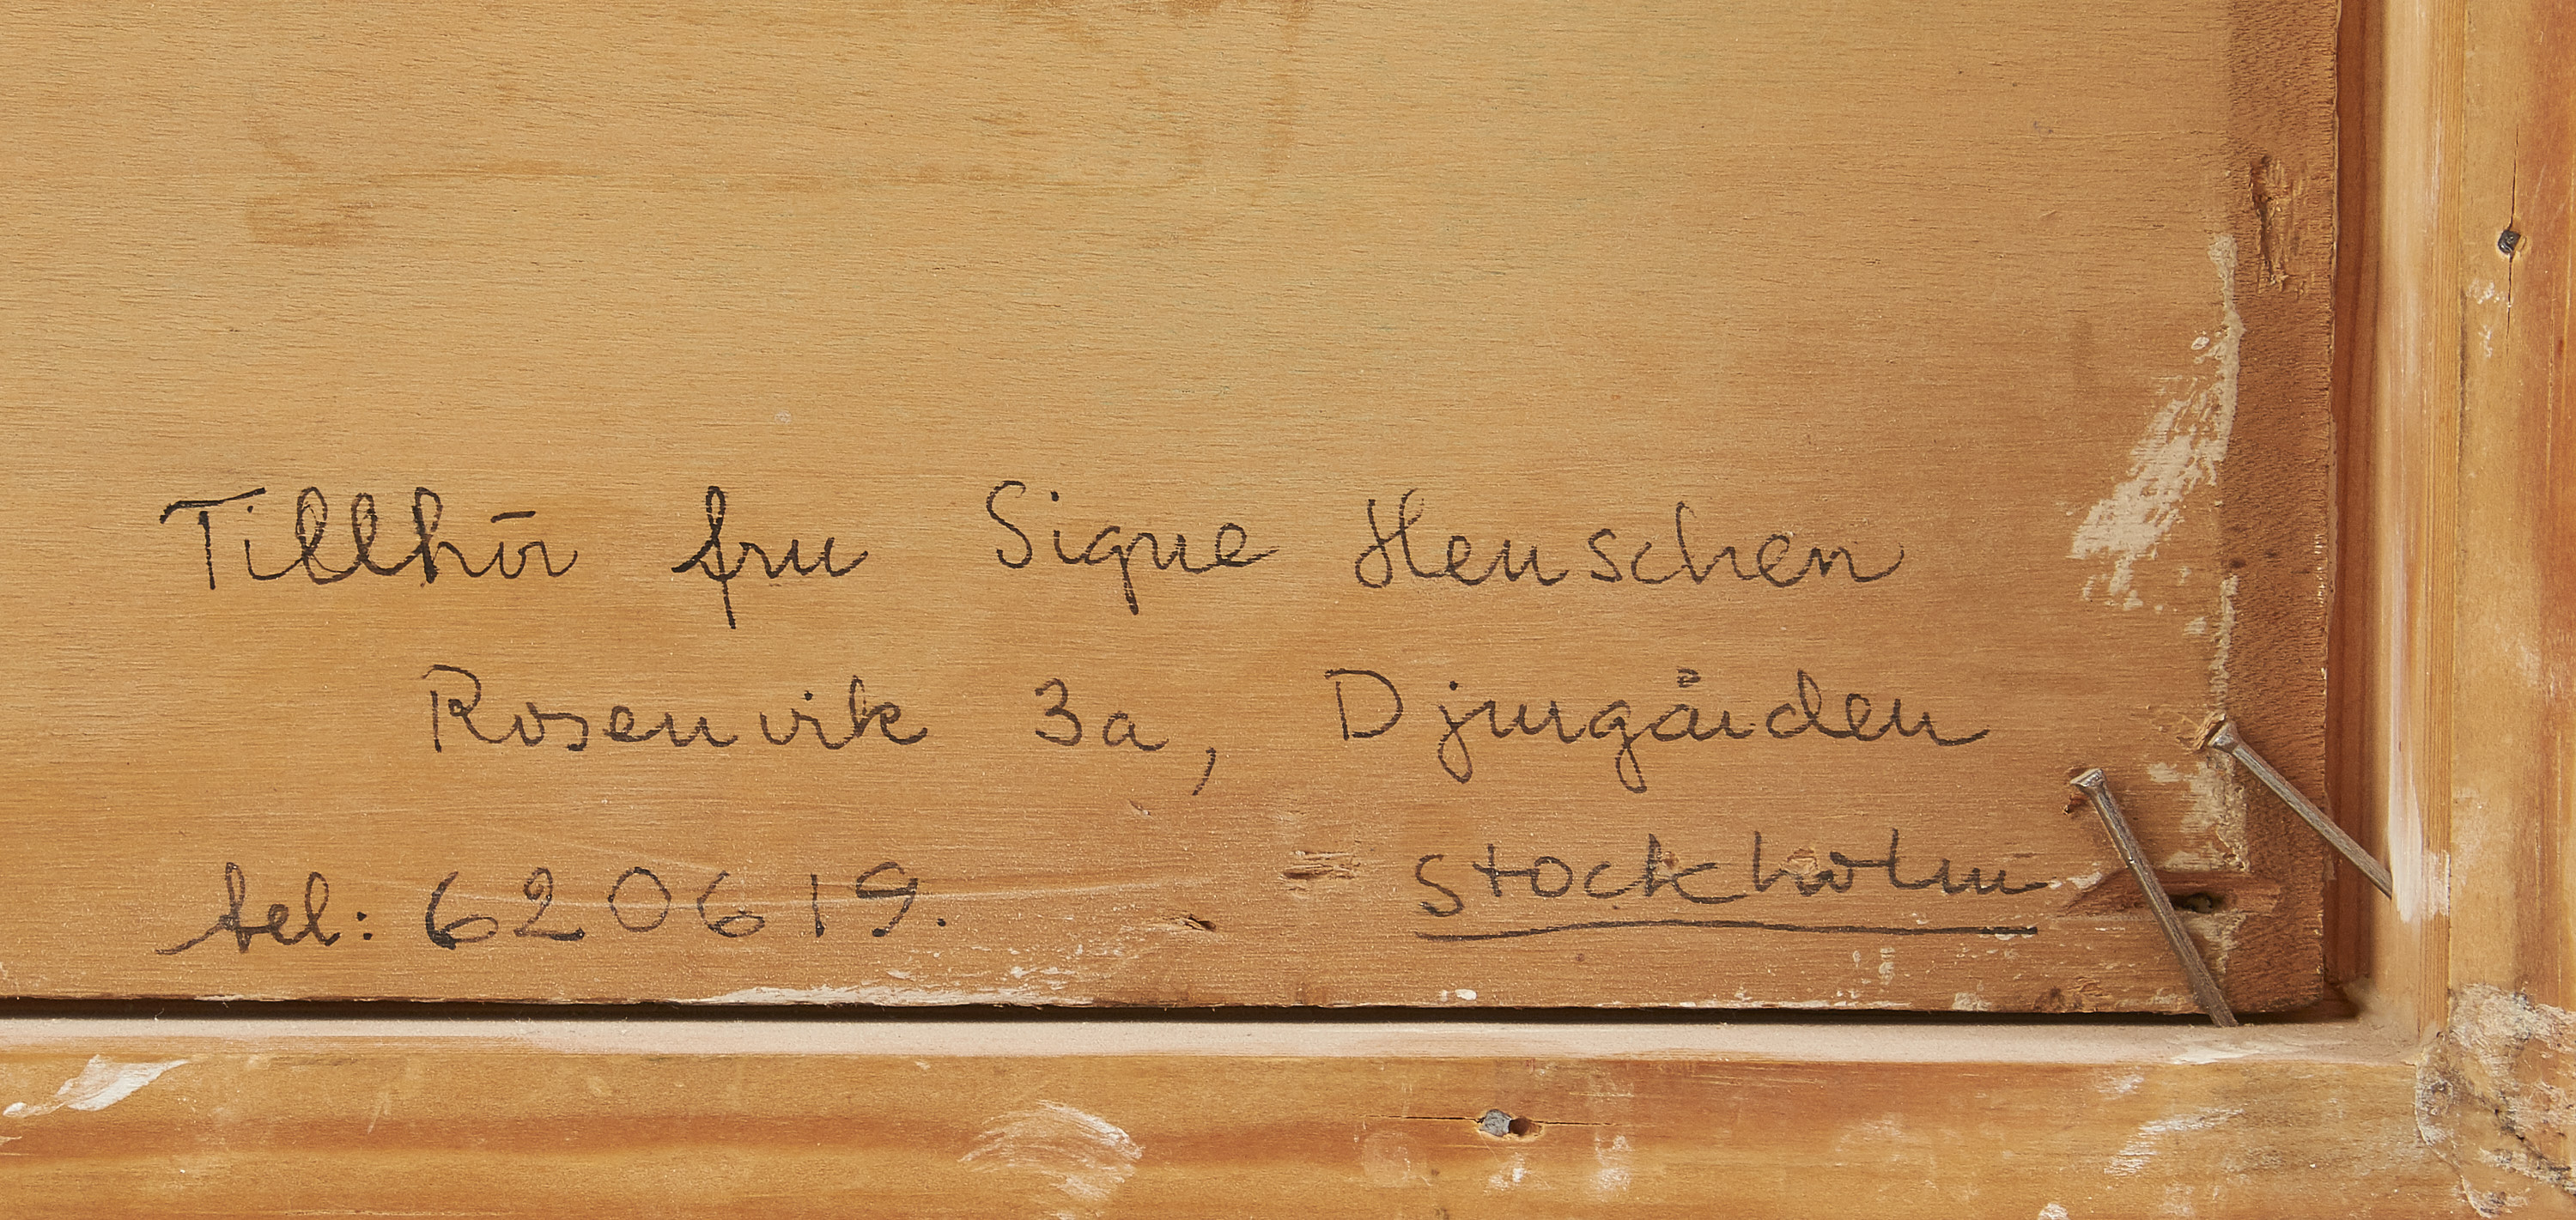 Tillhör fru Signe Henschen
Rosenvik 3a, Djurgården
tel: 620619. Stockholm